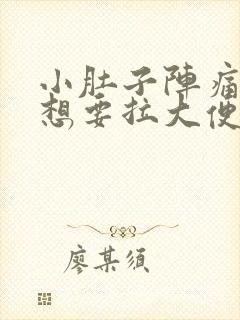 小肚子陣痛
想要拉大便
廖某须